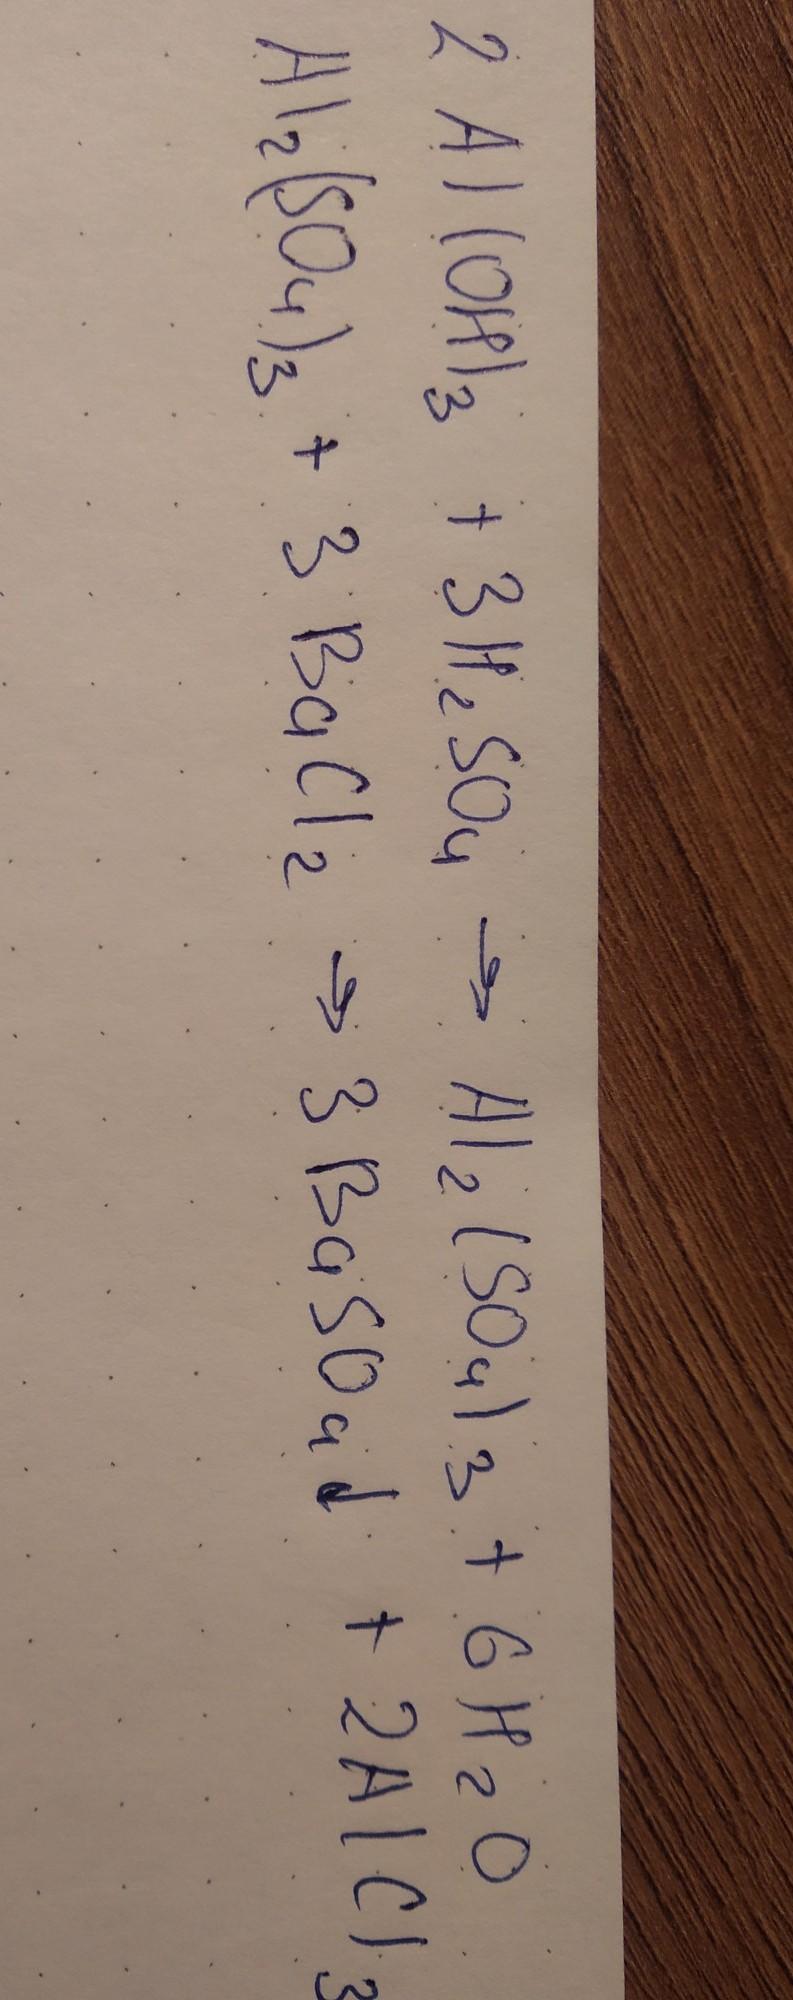 2 Al(OH)3 + 3H2SO4 → Al2(SO4)3 + 6H2O
Al2(SO4)3 + 3BaCl2 → 3BaSO4↓ + 2AlCl3